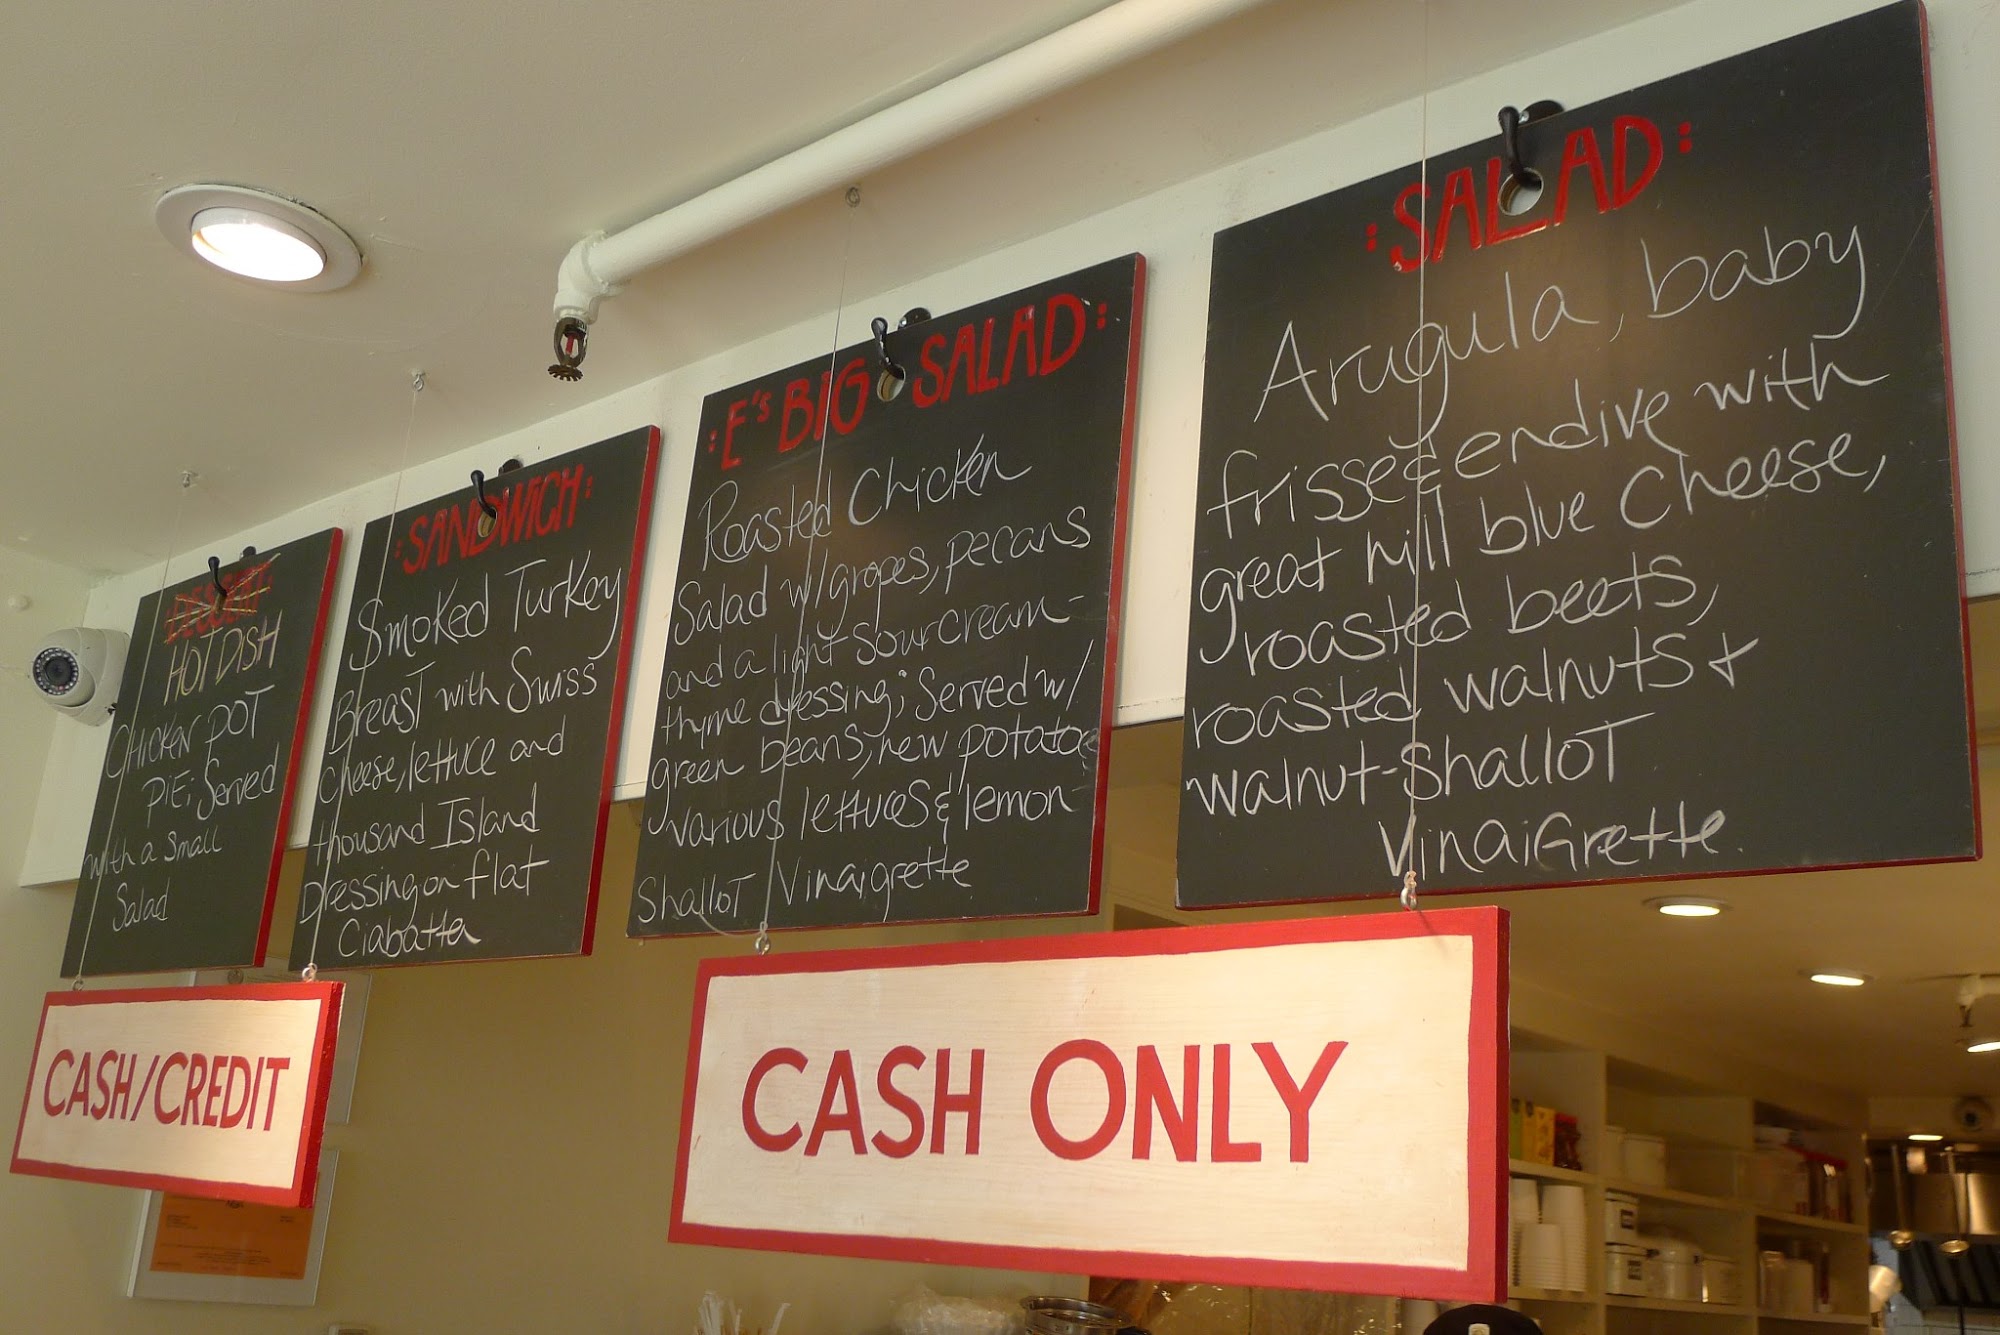 :DESSERT:
HOT DISH
CHICKEN POT
PIE; Served
with a small
Salad
:SANDWICH:
Smoked Turkey
Breast with Swiss
cheese, lettuce and
thousand Island
Dressing on flat
Ciabatta
:E's BIG SALAD:
Roasted Chicken
Salad w/grapes, pecans
and a light sour cream-
thyme dressing; Served w/
green beans, new potatoes
various lettuces & lemon-
Shallot Vinaigrette
:SALAD:
Arugula, baby
frisse & endive with
great hill blue cheese,
roasted beets,
roasted walnuts +
walnut-shallot
Vinaigrette.
CASH/CREDIT
CASH ONLY